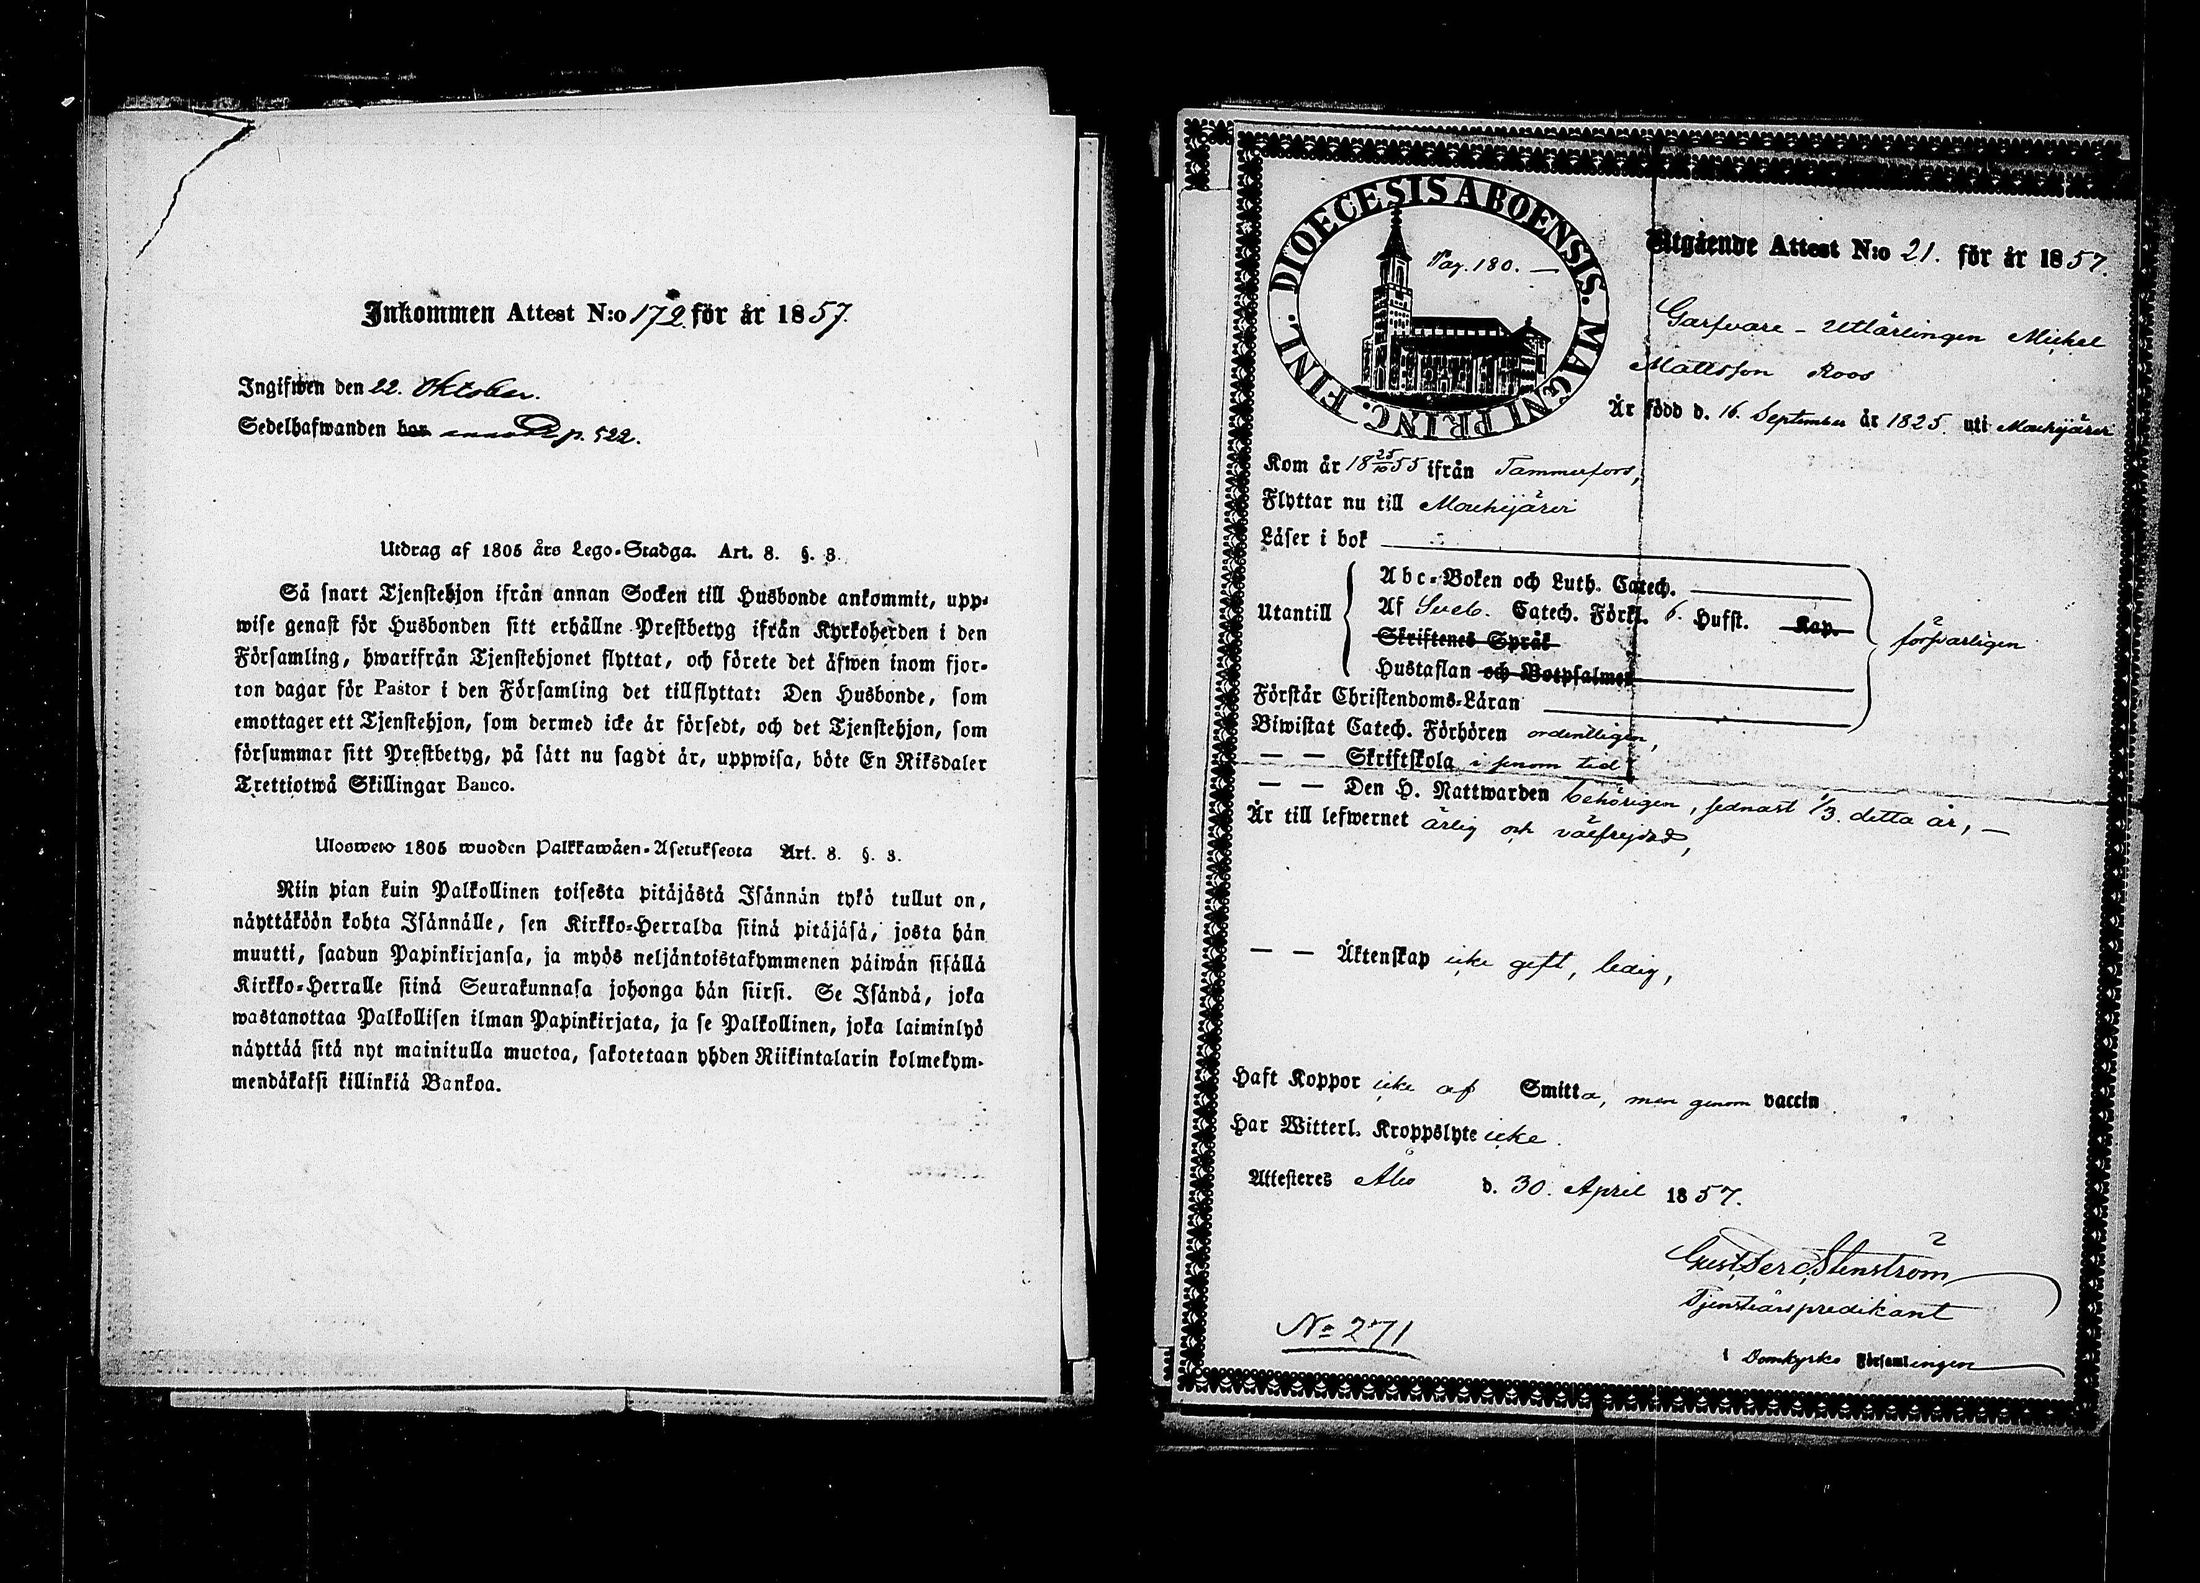 Inkommen Attest N:o 172. för år 1857.
Ingifwen den 22. Oktober.
Sedelhafwanden bor p. 522.
Utdrag af 1805 års Lego-Stadga. Art. 8. §. 3.
Så snart Tjenstehjon ifrån annan Socken till Husbonde ankommit, upp-
wise genast för Husbonden sitt erhållne Prestbetyg ifrån Kyrkoherden i den
Församling, hwarifrån Tjenstehjonet flyttat, och förete det äfwen inom fjor-
ton dagar för Pastor i den Församling det tillflyttat: Den Husbonde, som
emottager ett Tjenstehjon, som dermed icke är försedt, och det Tjenstehjon, som
försummar sitt Prestbetyg, på sätt nu sagdt är, uppwisa, böte En Riksdaler
Trettiotwå Skillingar Banco.
Ulosweto 1805 wuoden Palkkawäen-Asetuksesta Art. 8. §. 3.
Niin pian kuin Palkollinen toisesta pitäjästä Isännän tykö tullut on,
näyttäköön kohta Isännälle, sen Kirkko-Herralda siinä pitäjäsä, josta hän
muutti, saadun Papinkirjansa, ja myös neljäntoistakymmenen päiwän sisällä
Kirkko-Herralle siinä Seurakunnasa johonga hän siirsi. Se Isändä, joka
wastanottaa Palkollisen ilman Papinkirjata, ja se Palkollinen, joka laiminlyö
näyttää sitä nyt mainitulla muotoa, sakotetaan yhden Riikintalarin kolmekym-
mendäkaksi killinkiä Bankoa.
DIOECESIS ABOENSIS. MAGNI PRINC. FINL.
Pag. 180. —
Utgående Attest N:o 21. för år 1857.
Garfvare - Utlärlingen Michel
Mattsson Roos
Är född d. 16. September år 1825. uti Mouhijärvi
Kom år 18 25/10 55 ifrån Tammerfors,
Flyttar nu till Mouhijärvi
Läser i bok
Utantill
Abc-Boken och Luth. Catech.
Af Sveb. Catech. Förkl. 6. Hufst. Kap.
Skriftenes Språk
Hustaflan och Botpsalmer
försvarligen
Förstår Christendoms-Läran
Biwistat Catech. Förhören ordentligen,
— — Skriftskola i sinom tid
— — Den H. Nattwarden behörigen, sednast 1/3. detta år, —
Är till lefwernet ärlig och välfrejdad,
— — Äktenskap icke gift, ledig,
Haft Koppor icke af Smitta, men genom vaccin
Har Witterl. Kroppslyte icke.
Attesteres Åbo d. 30. April 1857.
Gust. Ser. Stenström
Tjensteårspredikant
i Domkyrko Församlingen
No 271